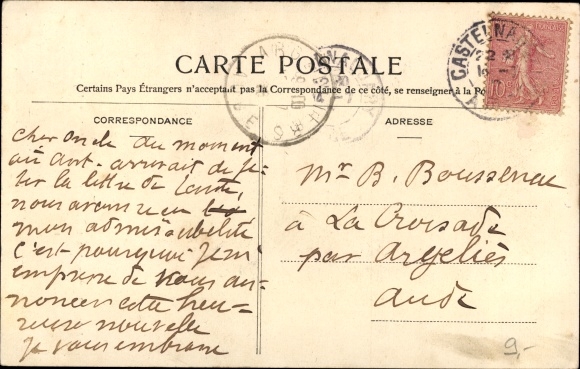 CARTE POSTALE
Certains Pays Étrangers n'acceptant pas la Correspondance de ce côté, se renseigner à la
CORRESPONDANCE
ADRESSE
cher oncle du moment
au arrivait de je-
ter la lettre de
nous avons recu
mon admissibilité
c'est pourquoi je m'
empresse de vous an-
noncer cette heu-
reuse nouvelle
Je vous embrasse
Mr B. Boussenac
à La Croisade
par Argeliès
Aude
CASTELNAU
10
9,-